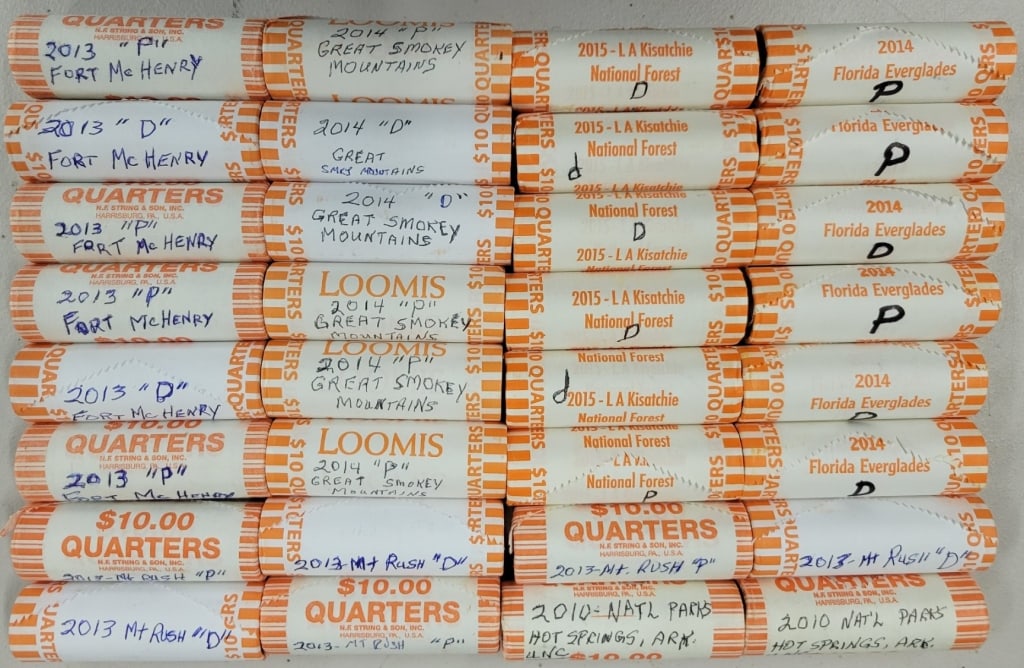 QUARTERS
N.F. STRING & SON, INC.
U.S.A.
2013 "P"
FORT McHENRY
2014 "P"
GREAT SMOKEY
MOUNTAINS
LOOMIS
$10 QUARTERS
2015 - L A Kisatchie
National Forest
D
2014
Florida Everglades
P
2013 "D"
FORT McHENRY
2014 "D"
GREAT
SMKY MOUNTAINS
$10
2015 - L A Kisatchie
National Forest
d
Florida Everglades
P
QUARTERS
N.F. STRING & SON, INC.
HARRISBURG, PA, U.S.A.
2013 "P"
FORT McHENRY
2014 "D"
GREAT SMOKEY
MOUNTAINS
$10
2015 - L A Kisatchie
National Forest
D
2015 - L A Kisatchie
National Forest
2014
Florida Everglades
D
QUARTERS
N.F. STRING & SON, INC.
HARRISBURG, PA, U.S.A.
2013 "P"
FORT McHENRY
LOOMIS
2014 "P"
GREAT SMOKEY
MOUNTAINS
2015 - L A Kisatchie
National Forest
D
2014
Florida Everglades
P
2013 "D"
FORT McHENRY
LOOMIS
2014 "P"
GREAT SMOKEY
MOUNTAINS
National Forest
d
2015 - L A Kisatchie
National Forest
2014
Florida Everglades
D
$10.00
QUARTERS
HARRISBURG, PA, U.S.A.
2013 "P"
FORT McHENRY
LOOMIS
2014 "P"
GREAT SMOKEY
MOUNTAINS
National Forest
National Forest
P
2014
Florida Everglades
D
$10.00
QUARTERS
N.F. STRING & SON, INC.
HARRISBURG, PA, U.S.A.
2013-Mt RUSH "P"
2013-Mt RUSH "D"
$10.00
QUARTERS
N.F. STRING & SON, INC.
HARRISBURG, PA, U.S.A.
2013-Mt. RUSH "P"
2013-Mt RUSH "D"
2013 Mt RUSH "D"
$10.00
QUARTERS
HARRISBURG, PA, U.S.A.
2013-MT RUSH "P"
2010-NAT'L PARKS
HOT SPRINGS, ARK.
UNC
$10.00
QUARTERS
2010 NAT'L PARKS
HOT SPRINGS, ARK.